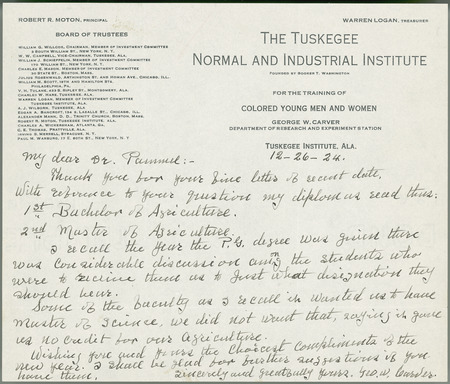 ROBERT R. MOTON, PRINCIPAL
WARREN LOGAN, TREASURER
BOARD OF TRUSTEES
WILLIAM G. WILLCOX, CHAIRMAN, MEMBER OF INVESTMENT COMMITTEE
3 SOUTH WILLIAM ST., NEW YORK, N. Y.
W. W. CAMPBELL, VICE-CHAIRMAN, TUSKEGEE, ALA.
WILLIAM J. SCHIEFFELIN, MEMBER OF INVESTMENT COMMITTEE
170 WILLIAM ST., NEW YORK, N. Y.
CHARLES E. MASON, MEMBER OF INVESTMENT COMMITTEE
30 STATE ST., BOSTON, MASS.
JULIUS ROSENWALD, ARTHINGTON ST. AND HOMAN AVE., CHICAGO, ILL.
WILLIAM M. SCOTT, 10TH AND HAMILTON STS.
PHILADELPHIA, PA.
V. H. TULANE, RIPLEY ST., MONTGOMERY, ALA.
CHARLES W. HARE, TUSKEGEE, ALA.
WARREN LOGAN, MEMBER OF INVESTMENT COMMITTEE
TUSKEGEE INSTITUTE, ALA.
A. J. WILBORN, TUSKEGEE, ALA.
EDGAR A. BANCROFT, LA SALLE ST., CHICAGO, ILL.
ALEXANDER MANN, D. D., TRINITY CHURCH, BOSTON, MASS.
ROBERT R. MOTON, TUSKEGEE INSTITUTE, ALA.
CHARLES A. WICKERSHAM, ATLANTA, GA.
C. E. THOMAS, PRATTVILLE, ALA.
PAUL M. WARBURG, 17 E. 80TH ST., NEW YORK, N. Y.
THE TUSKEGEE
NORMAL AND INDUSTRIAL INSTITUTE
FOUNDED BY BOOKER T. WASHINGTON
FOR THE TRAINING OF
COLORED YOUNG MEN AND WOMEN
GEORGE W. CARVER
DEPARTMENT OF RESEARCH AND EXPERIMENT STATION
TUSKEGEE INSTITUTE, ALA.
12-26-24.
My dear Dr. Pammel:-
Thank you for your fine letter of recent date.
With reference to your question my diplomas read thus:
1st Bachelor of Agriculture.
2nd Master of Agriculture.
I recall the year the P.G. degree was given there
was considerable discussion among the students who
were to receive them as to just what designation they
should bear.
Some of the faculty as I recall it wanted us to have
Master of Science, we did not want that, saying it gave
us no credit for our Agriculture.
Wishing you and yours the Choicest Compliments of the
new year. I shall be glad for further suggestions if you
have them.
Sincerely and gratefully yours, Geo. W. Carver.